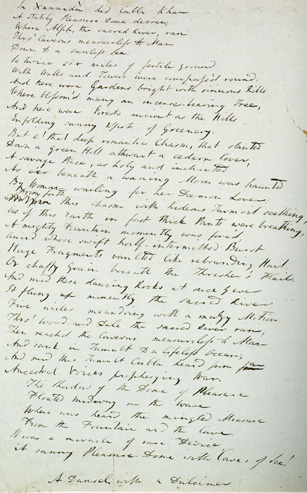 In Xannadù did Cubla Khan
A stately Pleasure-Dome decree;
Where Alph, the sacred River, ran
Thro' Caverns measureless to Man
Down to a sunless Sea.
So twice six miles of fertile ground
With Walls and Towers were compass'd round:
And here were Gardens bright with sinuous Rills
Where blossom'd many an incense-bearing Tree,
And here were Forests ancient as the Hills
Enfolding sunny Spots of Greenery.
But o! that deep romantic Chasm, that slanted
Down a green Hill athwart a cedarn Cover,
A savage Place, as holy and inchanted
As e'er beneath a waning Moon was haunted
By Woman wailing for her Demon Lover:
From forth this Chasm with hideous Turmoil seething,
As if this Earth in fast thick Pants were breathing,
A mighty Fountain momently was forc'd,
Amid whose swift half-intermitted Burst
Huge Fragments vaulted like rebounding Hail,
Or chaffy Grain beneath the Thresher's Flail:
And mid these dancing Rocks at once & ever
It flung up momently the sacred River.
Five miles meandring with a mazy Motion
Thro' Wood and Dale the sacred River ran,
Then reach'd the Caverns measureless to Man
And sank in Tumult to a lifeless Ocean;
And mid this Tumult Cubla heard from far
Ancestral Voices prophesying War.
The Shadow of the Dome of Pleasure
Floated midway on the Wave
Where was heard the mingled Measure
From the Fountain and the Cave.
It was a miracle of rare Device,
A sunny Pleasure-Dome with Caves of Ice!
A Damsel with a Dulcimer